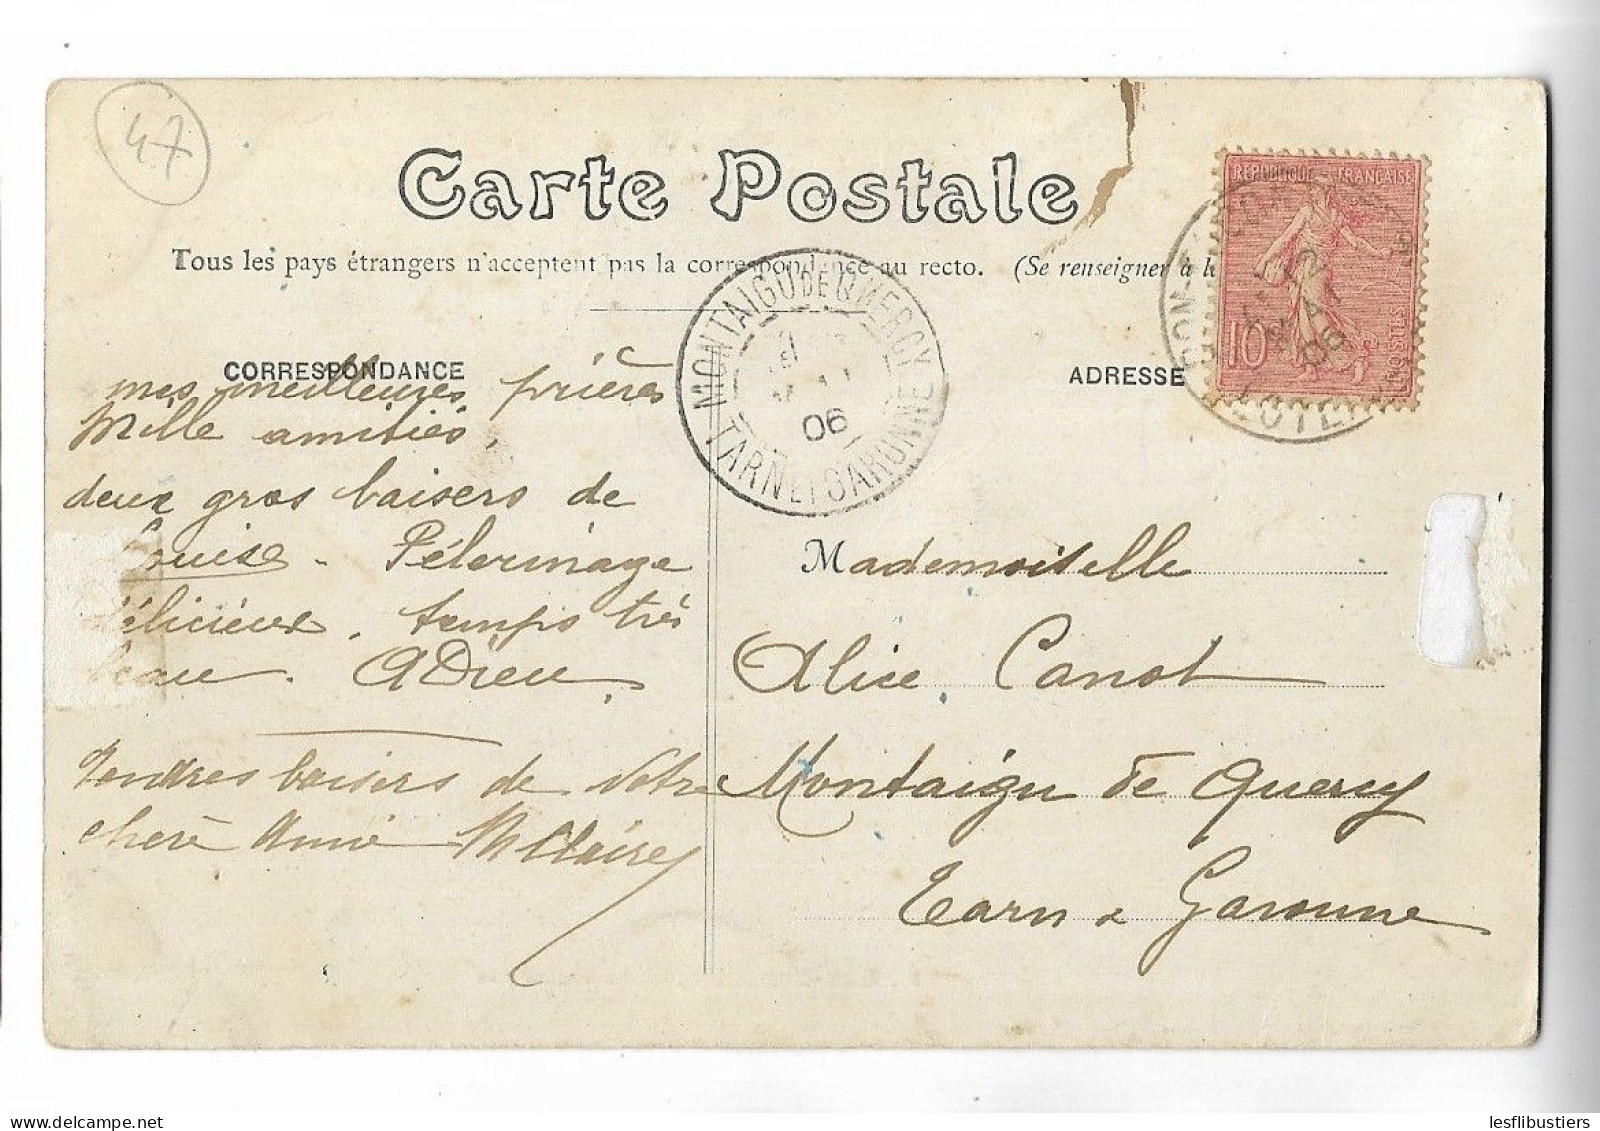 47
Carte Postale
Tous les pays étrangers n'acceptent pas la correspondance au recto. (Se renseigner à la
RÉPUBLIQUE FRANÇAISE
10
12
06
MONTAIGU DE QUERCY
06
TARN ET GARONNE
CORRESPONDANCE
ADRESSE
mes meilleures prières
Mille amitiés,
deux gros baisers de
Louise. Pélerinage
délicieux. temps très
beau. A Dieu.
Tendres baisers de votre
chère Amie M Claire
Mademoiselle
Alice Canot
Montaigu de Quercy
Tarn & Garonne
lesflibustiers